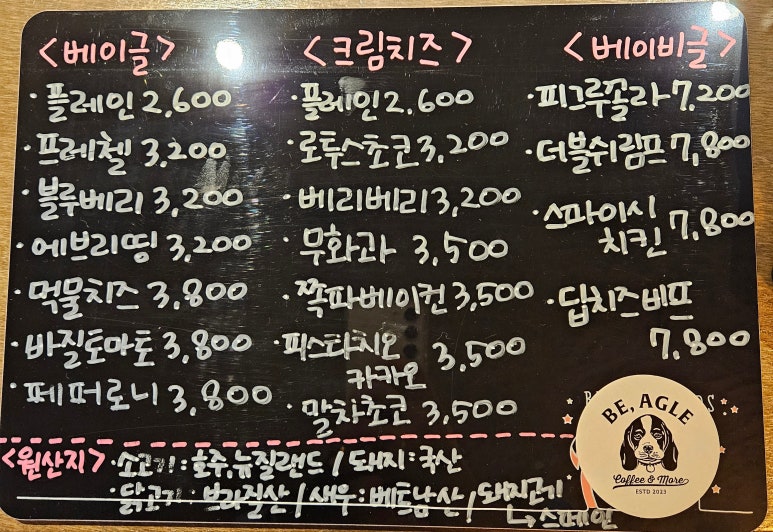 <베이글>
· 플레인 2,600
· 프레첼 3,200
· 블루베리 3,200
· 에브리띵 3,200
· 먹물치즈 3,800
· 바질토마토 3,800
· 페퍼로니 3,800
<크림치즈>
· 플레인 2,600
· 로투스초코 3,200
· 베리베리 3,200
· 무화과 3,500
· 쪽파베이컨 3,500
· 피스타치오
카카오 3,500
· 말차초코 3,500
<베이비글>
· 피그루꼴라 7,200
· 더블쉬림프 7,800
· 스파이시
치킨 7,800
· 딥치즈비프
7,800
<원산지> · 소고기 : 호주, 뉴질랜드 / 돼지 : 국산
· 닭고기 : 브라질산 / 새우 : 베트남산 / 돼지고기
↳ 스페인
BE, AGLE
Coffee & More
ESTD 2023